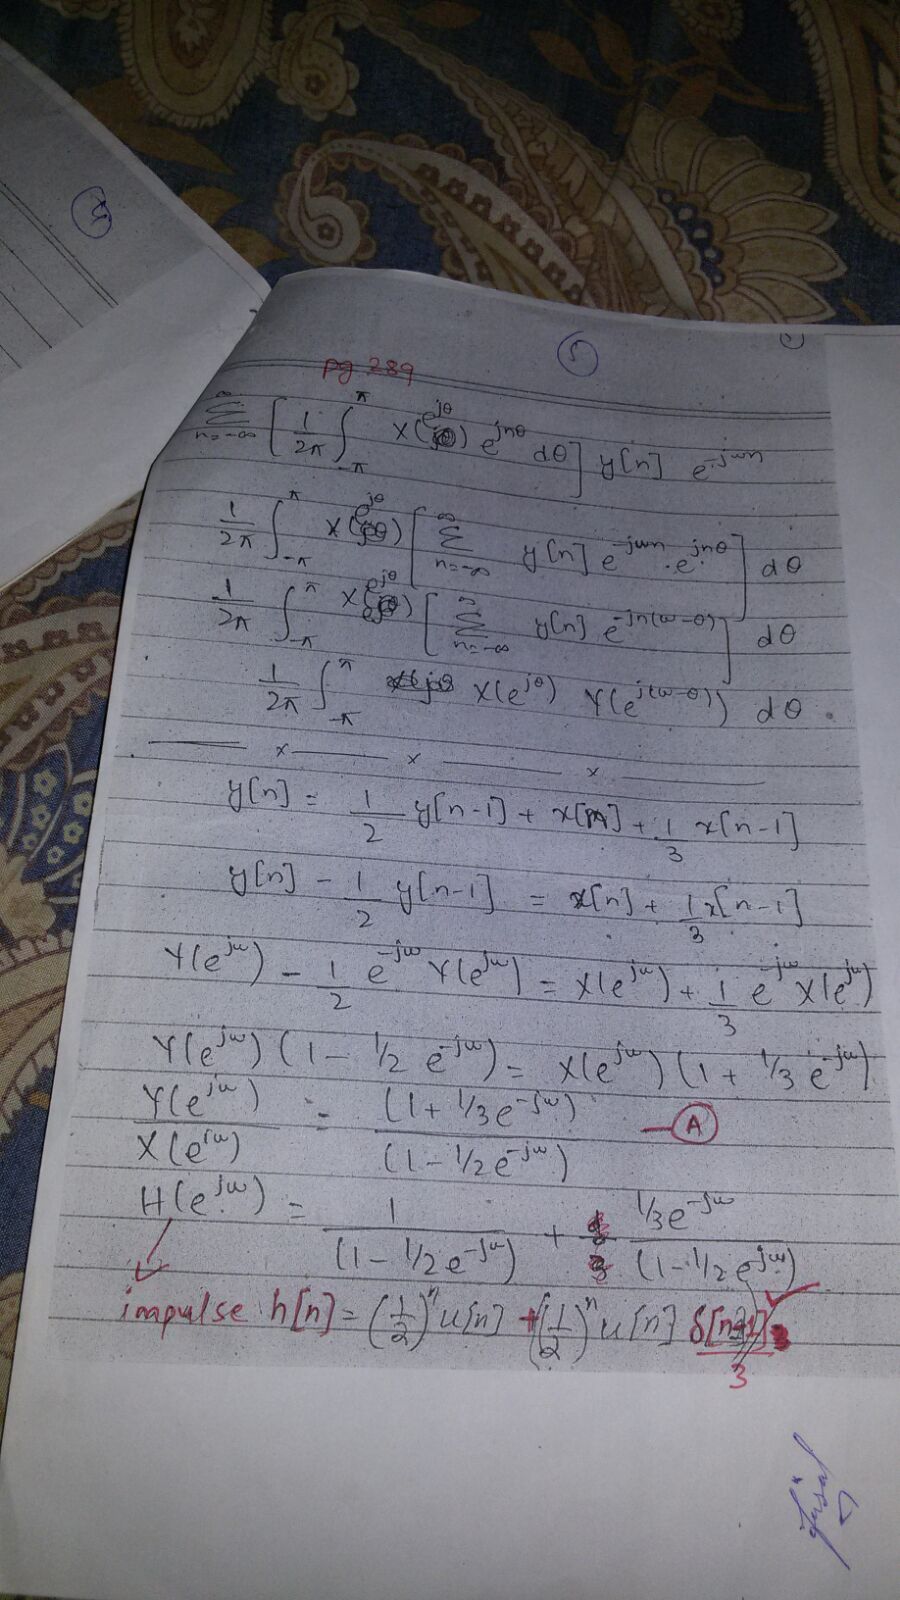 4
5
pg 289
∞ Σ n=-∞ [ 1/2π ∫ -π π X(e^jθ) e^jnθ dθ ] y[n] e^-jωn
1/2π ∫ -π π X(e^jθ) [ ∞ Σ n=-∞ y[n] e^-jωn . e^jnθ ] dθ
1/2π ∫ -π π X(e^jθ) [ ∞ Σ n=-∞ y[n] e^-jn(ω-θ) ] dθ
1/2π ∫ -π π X(e^jθ) Y(e^j(ω-θ)) dθ .
—— x —— x —— x ——
y[n] = 1/2 y[n-1] + x[n] + 1/3 x[n-1]
y[n] - 1/2 y[n-1] = x[n] + 1/3 x[n-1]
Y(e^jω) - 1/2 e^-jω Y(e^jω) = X(e^jω) + 1/3 e^-jω X(e^jω)
Y(e^jω) (1 - 1/2 e^-jω) = X(e^jω) (1 + 1/3 e^-jω)
Y(e^jω) / X(e^jω) = (1 + 1/3 e^-jω) / (1 - 1/2 e^-jω) — A
H(e^jω) = 1 / (1 - 1/2 e^-jω) + 1/3 e^-jω / (1 - 1/2 e^-jω)
impulse h[n] = (1/2)^n u[n] + (1/2)^n u[n] δ[n-1] / 3